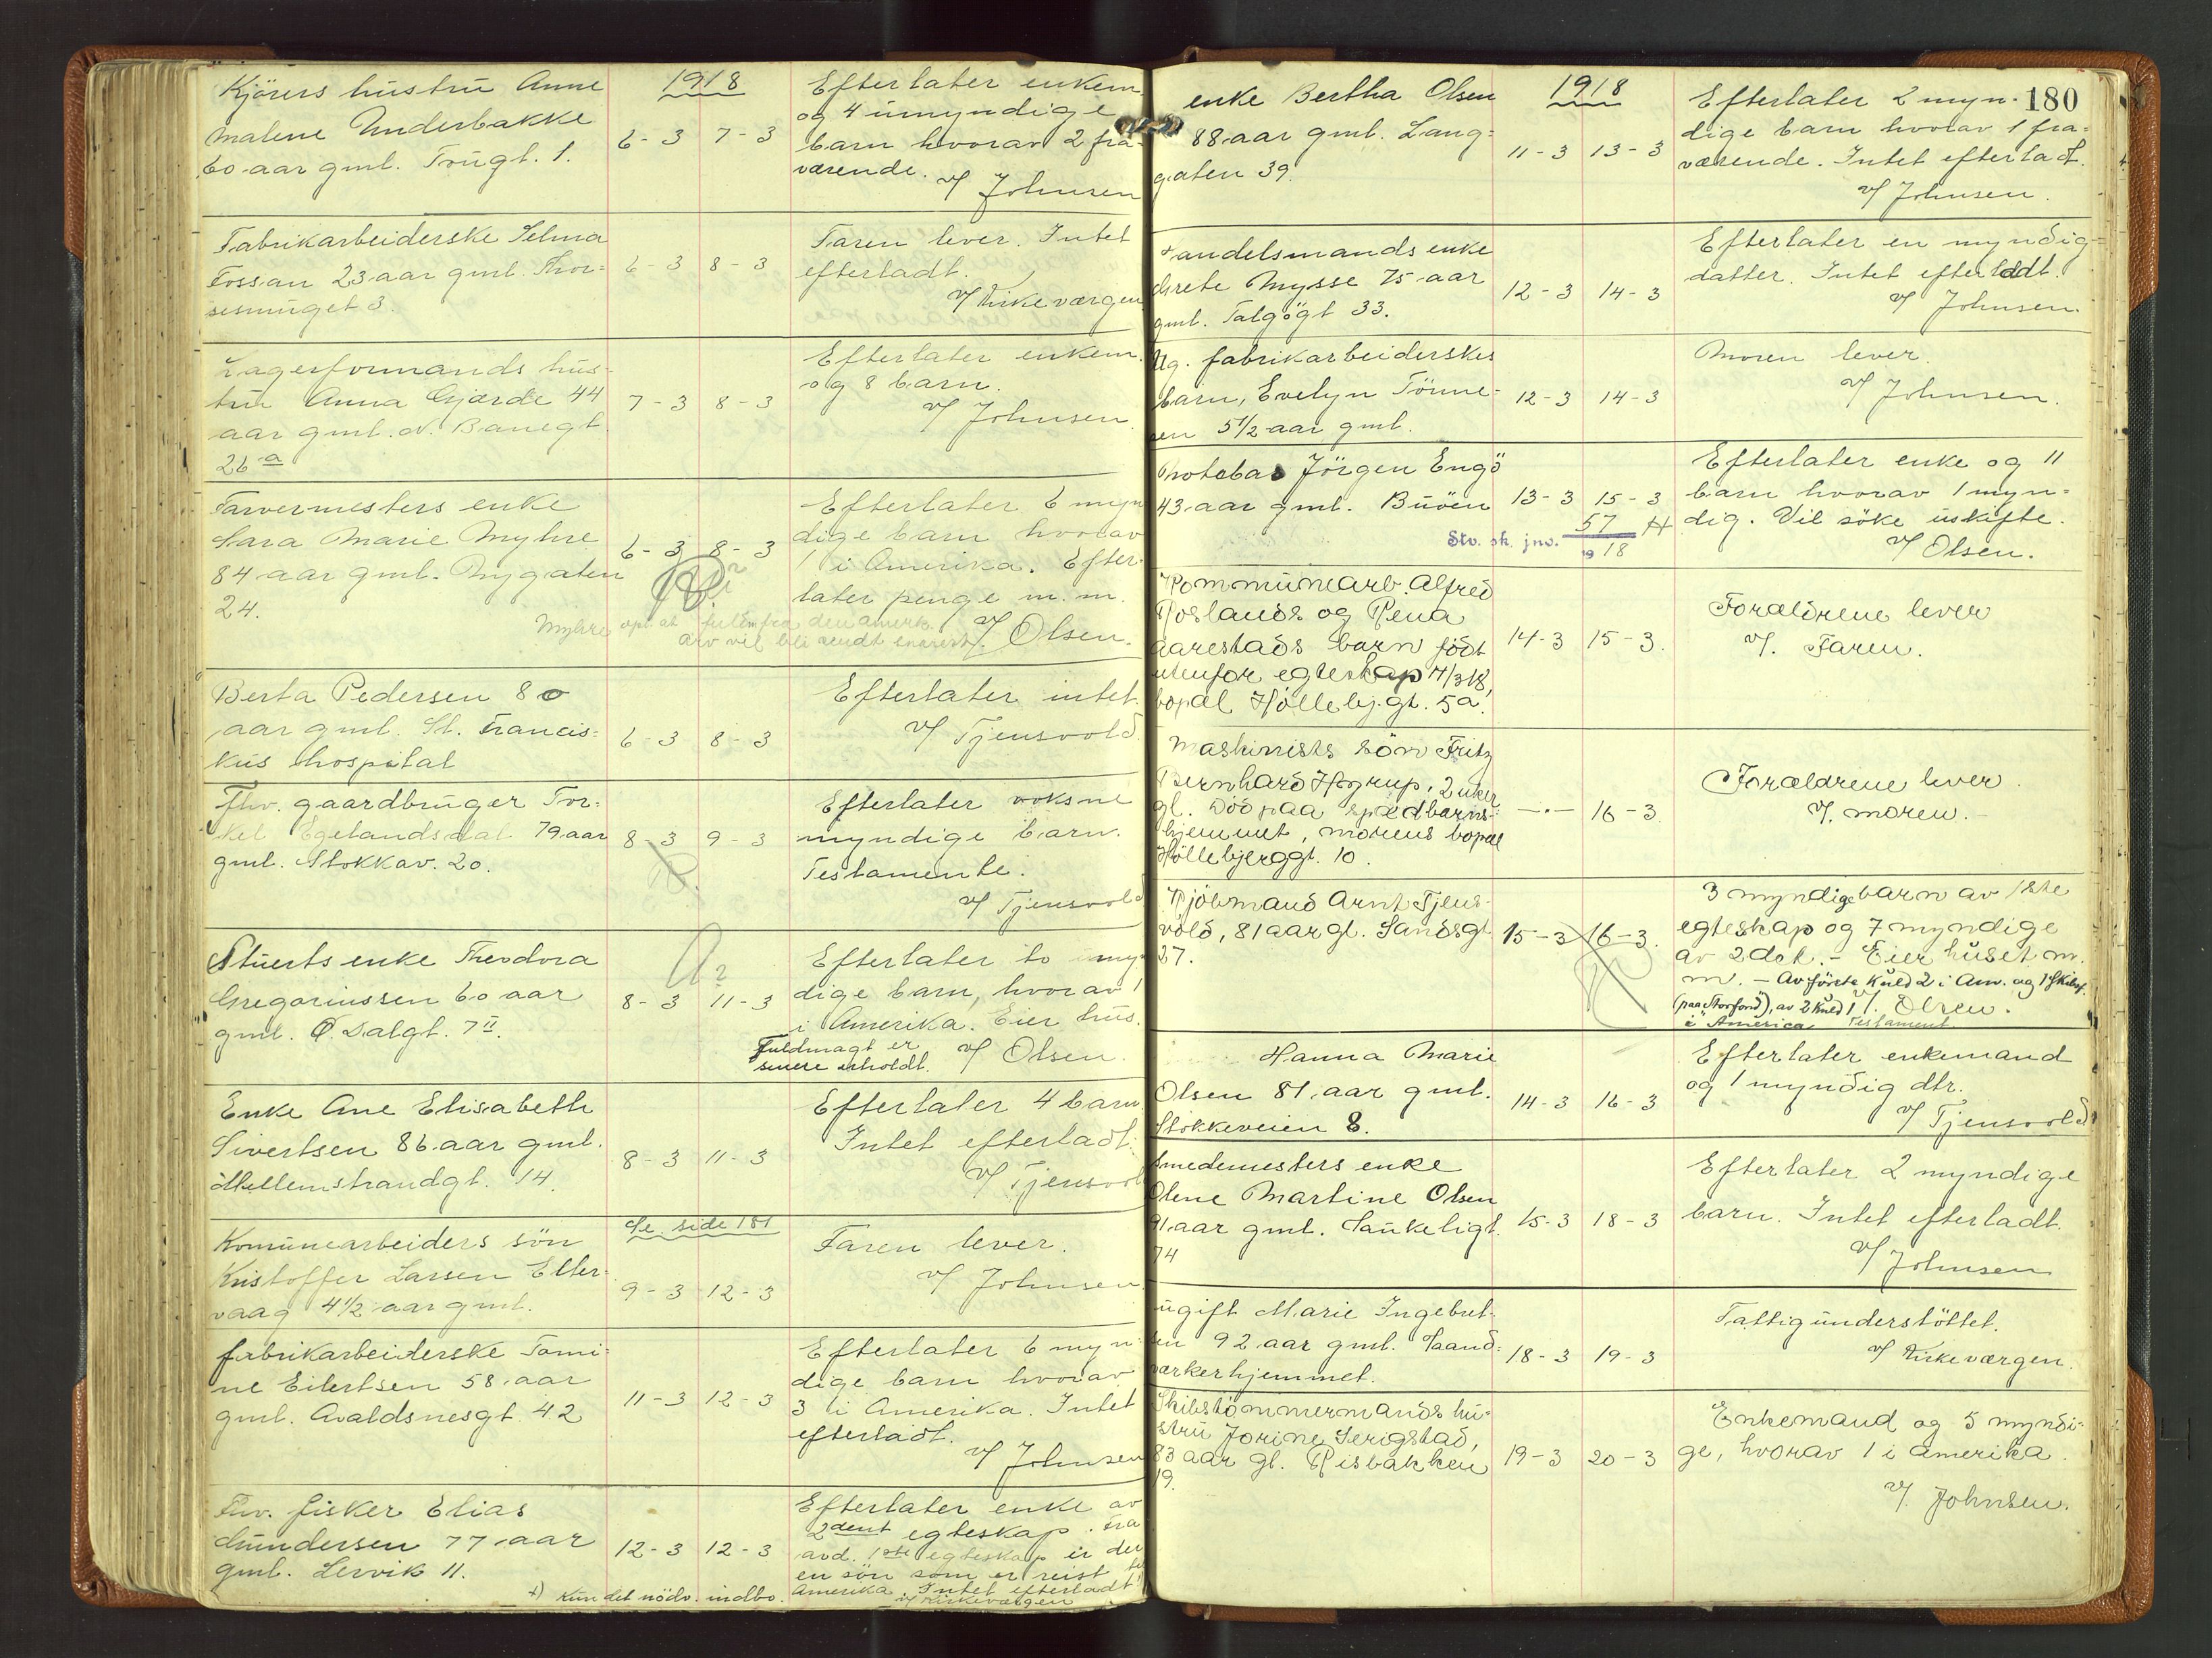 1918
Kjörers hustru Anne
Malene Underbakke
60 aar gml. Trügt. 1.
6-3 7-3
Efterlater enkem.
og 4 umyndige
barn hvorav 2 fra-
værende.
v/ Johnsen
Fabrikarbeiderske Selma
Fossan 23 aar gml. Thor-
sesmuget 3.
6-3 8-3
Faren lever. Intet
efterladt.
v/ Kirkeværgen
Lagerformands hus-
tru Anna Gjærde 44
aar gml. N. Banegt.
26 a
7-3 8-3
Efterlater enkem.
og 8 barn.
v/ Johnsen
Farvermesters enke
Sara Marie Myhre
84 aar gml. Nygaten
24.
6-3 8-3
Efterlater 6 myn
dige barn hvorav
1 i Amerika. Efter-
later penge m. m.
v/ Olsen.
Myhre opl. at fra den amerk.
arv vil bli sendt
Berta Pedersen 80
aar gml. St. Francis-
kus hospital
6-3 8-3
Efterlater intet.
v/ Tjensvold
Fhv. gaardbruger Tor-
kel Egelandsdal 79 aar
gml. Stokkav. 20.
8-3 9-3
Efterlater voksne
myndige barn.
Testamente.
v/ Tjensvold
Stuerts enke Theodora
Gregoriussen 60 aar
gml. Ø. Dalgt. 7 II.
8-3 11-3
Efterlater to myn
dige barn, hvorav 1
i Amerika. Eier hus.
v/ Olsen.
Fuldmagt er
senere erholdt.
Enke Ane Elisabeth
Sivertsen 86 aar gml.
Mellemstrandgt. 14.
8-3 11-3
Efterlater 4 barn.
Intet efterladt.
v/ Tjensvold
Se side 181
Komunearbeiders sön
Kristoffer Larsen Elter-
vaag 4½ aar gml.
9-3 12-3
Faren lever.
v/ Johnsen
Fabrikarbeiderske Tomi-
ne Eilertsen 58 aar
gml. Avaldsnesgt. 42
11-3 12-3
Efterlater 6 myn-
dige barn hvorav
3 i Amerika. Intet
efterladt.
v/ Johnsen
Fhv. fisker Elias
Gundersen 77 aar
gml. Lervik 11.
12-3 12-3
Efterlater enke av
2dent egteskap. Fra
avd. 1ste egteskap er der
en sön som er reist til
Amerika. Intet efterladt
v/ Kirkeværgen
x) Kun det nödv. indbo.
180
1918
enke Bertha Olsen
88 aar gml. Lang-
gaten 39.
11-3 13-3
Efterlater 2 myn-
dige barn hvorav 1 fra-
værende. Intet efterladt.
v/ Johnsen.
Handelsmands enke
Grete Mysse 75 aar
gml. Talgögt 33.
12-3 14-3
Efterlater en myndig
datter. Intet efterladt.
v/ Johnsen.
Ug. fabrikarbeiderskes
barn, Evelyn Tönne-
sen 5½ aar gml.
12-3 14-3
Moren lever.
v/ Johnsen.
Jörgen Engö
43 aar gml. Buöen
13-3 15-3
Stv. sk. jnv. 57
1918
Efterlater enke og 11
barn hvorav 1 myn-
dig. Vil söke uskifte.
v/ Olsen.
Kommunearb. Alfred
Roslands og Rena
Aarestads barn födt
utenfor egteskap 14/3 18,
bopæl Hölleby.gt. 5a.
14-3 15-3.
Forældrene lever
v/. Faren.
Maskinists sön Fritz
Bernhard Höyrup, 2 uker
gl. Död paa spædbarns-
hjemmet, morens bopæl
Höllebjerggt. 10.
-.- 16-3.
Forældrene lever
v/. moren.
Kjöbmand Arnt Tjens-
vold, 81 aar gl. Sandsgt.
27.
15-3 16-3.
3 myndige barn av 1ste
egteskap og 7 myndige
av 2det. - Eier huset m.
m. - Av förste kuld 2 i Am. og 1
(paa Storfond), av 2 kuld 1
i America.
v/. Olsen.
Testament
Hanna Marie
Olsen 81 aar gml.
Stokkeveien 8.
14-3 16-3
Efterlater enkemand
og 1 myndig dtr.
v/ Tjensvold
Smedemesters enke
Olene Martine Olsen
91 aar gml. Taukeligt.
74
15-3 18-3
Efterlater 2 myndige
barn. Intet efterladt.
v/ Johnsen
ugift Marie Ingebret-
sen 92 aar gml. Haand-
værkerhjemmet.
18-3 19-3
Fattigunderstöttet.
v/ Kirkeværgen.
Skibstömmermands hu-
stru Jorine Serigstad,
83 aar gl. Risbakken
19.
19-3 20-3
Enkemand og 5 myndi-
ge, hvorav 1 i Amerika.
v/. Johnsen.